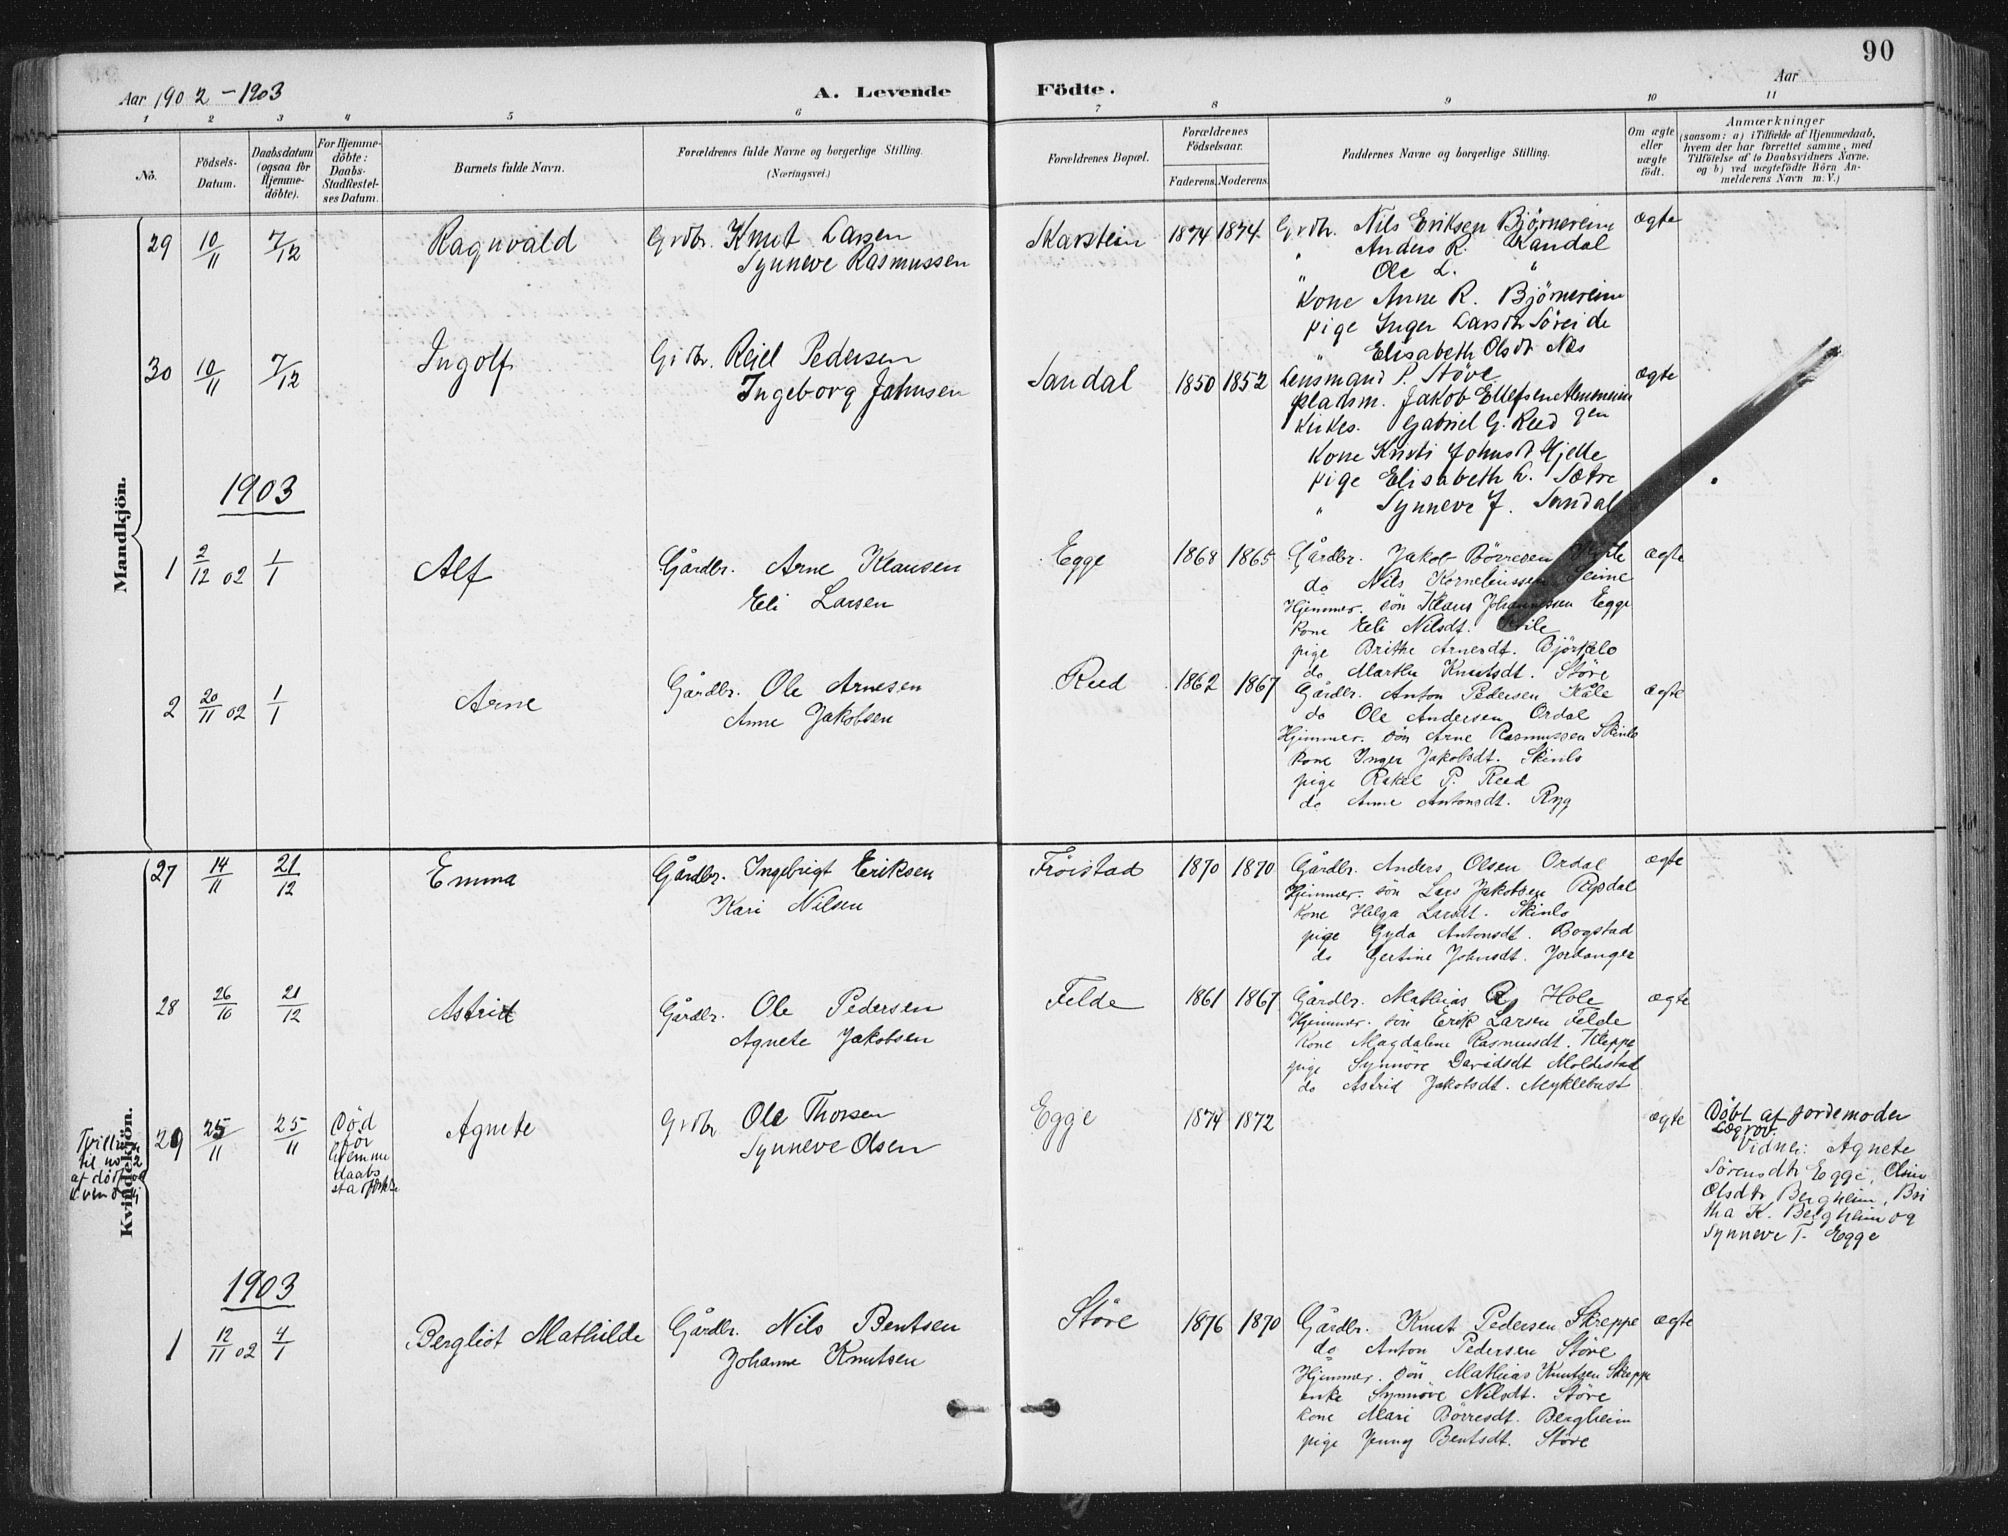 90
Aar 1902 - 1903
A. Levende
Födte.
Aar
1 2 3 4 5 6 7 8 9 10 11
No.
Födsels-Datum.
Daabsdatum (ogsaa for Hjemme-döbte).
For Hjemme-döbte: Daabs-Stadfæstel-ses Datum.
Barnets fulde Navn.
Forældrenes fulde Navne og borgerlige Stilling.
(Næringsvei.)
Forældrenes Bopæl.
Forældrenes Födselsaar.
Faderens. Moderens.
Faddernes Navne og borgerlige Stilling.
Om ægte eller uægte födt.
Anmærkninger
(saasom: a) i Tilfælde af Hjemmedaab,
hvem der har forrettet samme, med
Tilföielse af to Daabsvidners Navne,
og b) ved uægtefödte Börn An-
melderens Navn m. V.)
Mandkjön.
29 10/11 7/12 Ragnvald Grdbr. Knut Larsen Skarstein 1874 1874 Grdbr. Nils Eriksen Bjørnereim ægte
Synneve Rasmussen
" Anders R. Sandal
" Ole L. "
Kone Anne R. Bjørnereim
pige Inger Larsdtr Søreide
" Elisabeth Olsdtr Næs
30 10/11 7/12 Ingolf Grdbr. Reiel Pedersen Sandal 1850 1852 Lensmand P. Støve ægte
Ingeborg Johnsen
pladsm. Jakob Ellefsen
Kirkes. Gabriel G. Reed
Kone Kristi Johnsdt Hjelle
pige Elisabeth L. Sætre
" Synneve J. Sandal
1903
1 2/12 02 1/1 Alf Gårdbr. Arne Klausen Egge 1868 1865 Gårdbr. Jakob Børresen ægte
Eli Larsen
do Nils Korneliussen
Hjemmev. søn Klaus Johannessen Egge
kone Eli Nilsdt.
pige Brithe Arnesdt. Björkelo
do Marthe Knutsdt. Störe
2 20/11 02 1/1 Arne Gårdbr. Ole Arnesen Reed 1862 1867 Gårdbr. Anton Pedersen Kåle ægte
Anne Jakobsen
do Ole Andersen Ordal
Hjemmev. søn Arne Rasmussen Skinlo
kone Inger Jakobsdt. Skinlo
pige Rakel P. Reed
do Anne Antonsdt. Ryg
Kvindekjön.
27 14/11 21/12 Emma Gårdbr. Ingebrigt Eriksen Frøistad 1870 1870 Gårdbr. Anders Olsen Ordal ægte
Kari Nilsen
Hjemmev. søn Lars Jakobsen Rysdal
kone Helga Larsdt. Skinlo
pige Gyda Antonsdt. Bogstad
do Gertine Johnsdt. Jordanger
28 26/10 21/12 Astrid Gårdbr. Ole Pedersen Felde 1861 1867 Gårdbr. Mathias R. Hole ægte
Agnete Jakobsen
Hjemmev. søn Erik Larsen Felde
kone Magdalene Rasmusdt. Kleppe
pige Synnöve Davidsdt Moldestad
do Astrid Jakobsdt. Myklebust
Tvilling
til no 2
af dødf
29 25/11 25/11 Død
før
hjemme
daabs
stadfæst.
Agnete Grdbr Ole Thorsen Egge 1874 1872 ægte
Synneve Olsen
Døbt af jordemoder
Vidner: Agnete
Sørensdtr Egge,
Olsdtr Bergheim, Bri
tha K. Bergheim og
Synneve T. Egge
1903
1 12/11 02 4/1 Bergliot Mathilde Gårdbr. Nils Bentsen Störe 1876 1870 Gårdbr. Knut Pedersen Skreppe ægte
Johanne Knutsen
do Anton Pedersen Störe
Hjemmev. søn Mathias Knutsen Skreppe
enke Synnöve Nilsdt. Störe
kone Mari Börresdt. Bergheim
pige Jenny Bentsdt. Störe